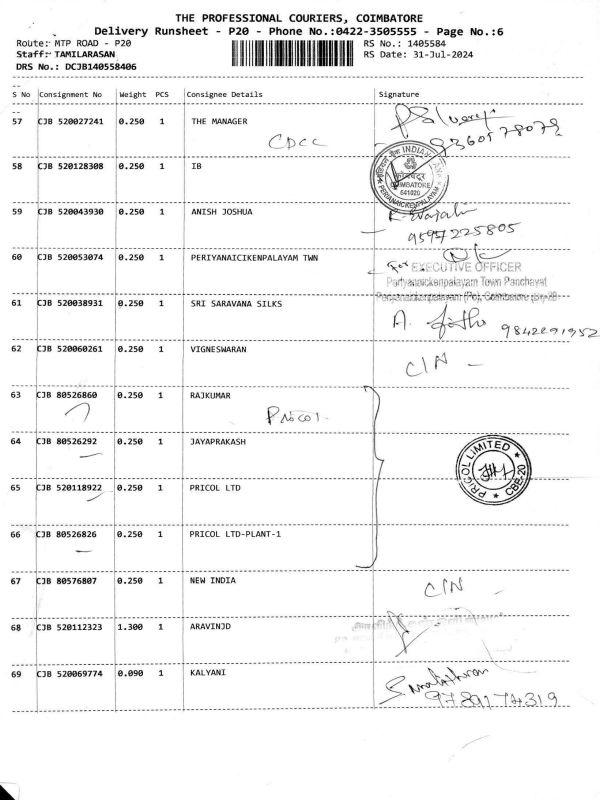 THE PROFESSIONAL COURIERS, COIMBATORE
Delivery Runsheet - P20 - Phone No.:0422-3505555 - Page No.:6
Route:- MTP ROAD - P20 RS No.: 1405584
Staff:- TAMILARASAN RS Date: 31-Jul-2024
DRS No.: DCJB140558406
S No Consignment No Weight PCS Consignee Details Signature
57 CJB 520027241 0.250 1 THE MANAGER
CDCC
58 CJB 520128308 0.250 1 IB
INDIAN
COIMBATORE
641020
PERIYANAICKENPALAYAM
59 CJB 520043930 0.250 1 ANISH JOSHUA
9597225805
60 CJB 520053074 0.250 1 PERIYANAICIKENPALAYAM TWN
For EXECUTIVE OFFICER
Periyanaickenpalayam Town Panchayat
61 CJB 520038931 0.250 1 SRI SARAVANA SILKS
9842291952
62 CJB 520060261 0.250 1 VIGNESWARAN
C/N -
63 CJB 80526860 0.250 1 RAJKUMAR
Pricol
64 CJB 80526292 0.250 1 JAYAPRAKASH
PRICOL LIMITED
CBE-20
65 CJB 520118922 0.250 1 PRICOL LTD
66 CJB 80526826 0.250 1 PRICOL LTD-PLANT-1
67 CJB 80576807 0.250 1 NEW INDIA
C/N -
68 CJB 520112323 1.300 1 ARAVINJD
69 CJB 520069774 0.090 1 KALYANI
9789174319